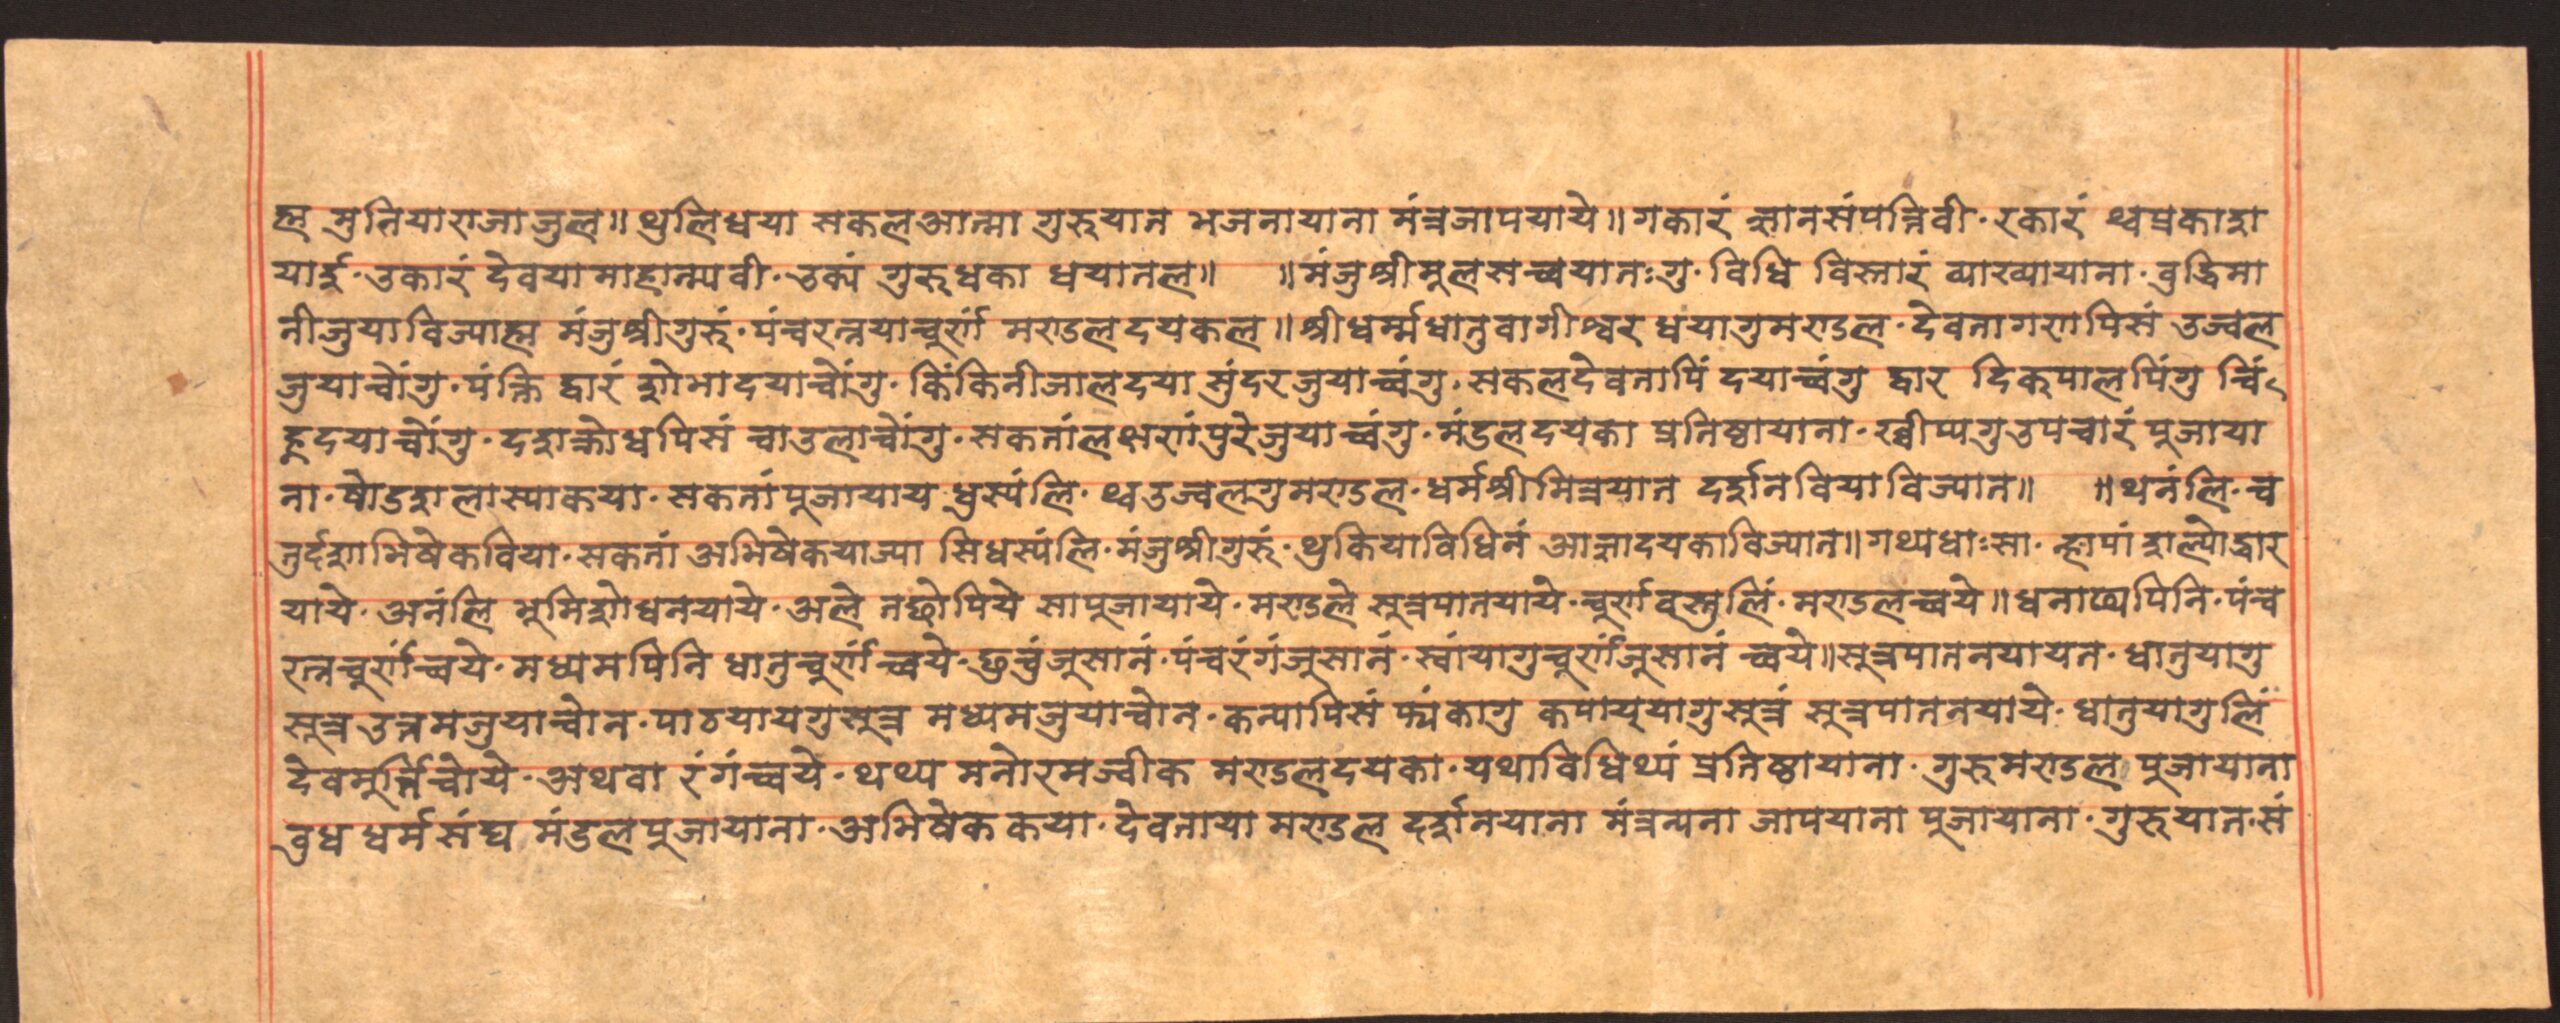 ह्म मुनियाराजा जुल॥ थुलिधया सकलआत्मा गुरुयात भजनायाना मंत्रजापयाये॥ गकारं ज्ञानसंपत्तिवी· रकारं थ्वप्रकाश
यार्इ· उकारं देवया माहात्म्यवी· उक्यं गुरुधका धयातल॥ ॥ मंजुश्रीमूलसच्वयातःगु· विधि विस्तारं व्याख्यायाना· बुद्धिमा
नीजुयाविज्याह्म मंजुश्रीगुरुं· पंचरत्नयाचुर्णं मण्डलदयकल॥ श्रीधर्म्मधातुवागीश्वर धयागुमण्डल· देवतागणपिसं उज्वल
जुयाचोंगु· पंक्ति द्वारं शोभादयाचोंगु· किंकिनीजालदया सुंदरजुयाच्वंगु· सकलदेवतापिं दयाच्वंगु द्वार दिक्पालपिंगु चिं
ह्रदयाचोंगु· दशक्रोधपिसं चाउलाचोंगु· सकतांलक्षणंपुरेजुयाच्वंगु· मंडलदयका प्रतिष्ठायाना· ख्वीप्यगुउपचारं पुजाया
ना· षोडशलास्याकया· सकतांपूजायाय धुस्यंलि· थ्वउज्वलगुमण्डल· धर्मश्रीमित्रयात दर्शनवियाविज्यात॥ ॥ थनंलि· च
तुर्दशाभिषेकविया· सकतां अभिषेकयाज्या सिधस्यंलि· मंजुश्रीगुरुं· थुकियाविधिनं आज्ञादयकाविज्यात॥ गथ्यधाःसा· न्हापां शल्योद्धार
याये· अनंलि भूमिशोधनयाये· अले नछोपिये सापुजायाये· मण्डले सूत्रपातयाये· चुर्णवस्तुलिं· मण्डलच्वये॥ धनाढ्यपिनि· पंच
रत्नचुर्णंच्वये· मध्यमपिनि धातुचुर्णंच्वये· छुचुंजुसानं· पंचरंगंजुसानं· स्वांयागुचुर्णंजुसानं च्वये॥ सूत्रपातनयायत· धातुयागु
सूत्र उत्तमजुयाचोन· पाठयायगुसूत्र मध्यमजुयाचोन· कन्यापिसं फ्यंकागु कपाय्यागुसूत्रं सूत्रपातनयाये· धातुयागुलिं
देवमूर्त्तिचोये· अथवा रंगंच्वये· थथ्य मनोरमज्वीक मण्डलदयका· यथाविधिथ्यं प्रतिष्ठायाना· गुरुमण्डल पुजायाना
बुध धर्म संघ मंडलपुजायाना· अभिषेक कया· देवताया मण्डल दर्शनयाना मंत्रन्यना जापयाना पुजायाना· गुरुयात· सं